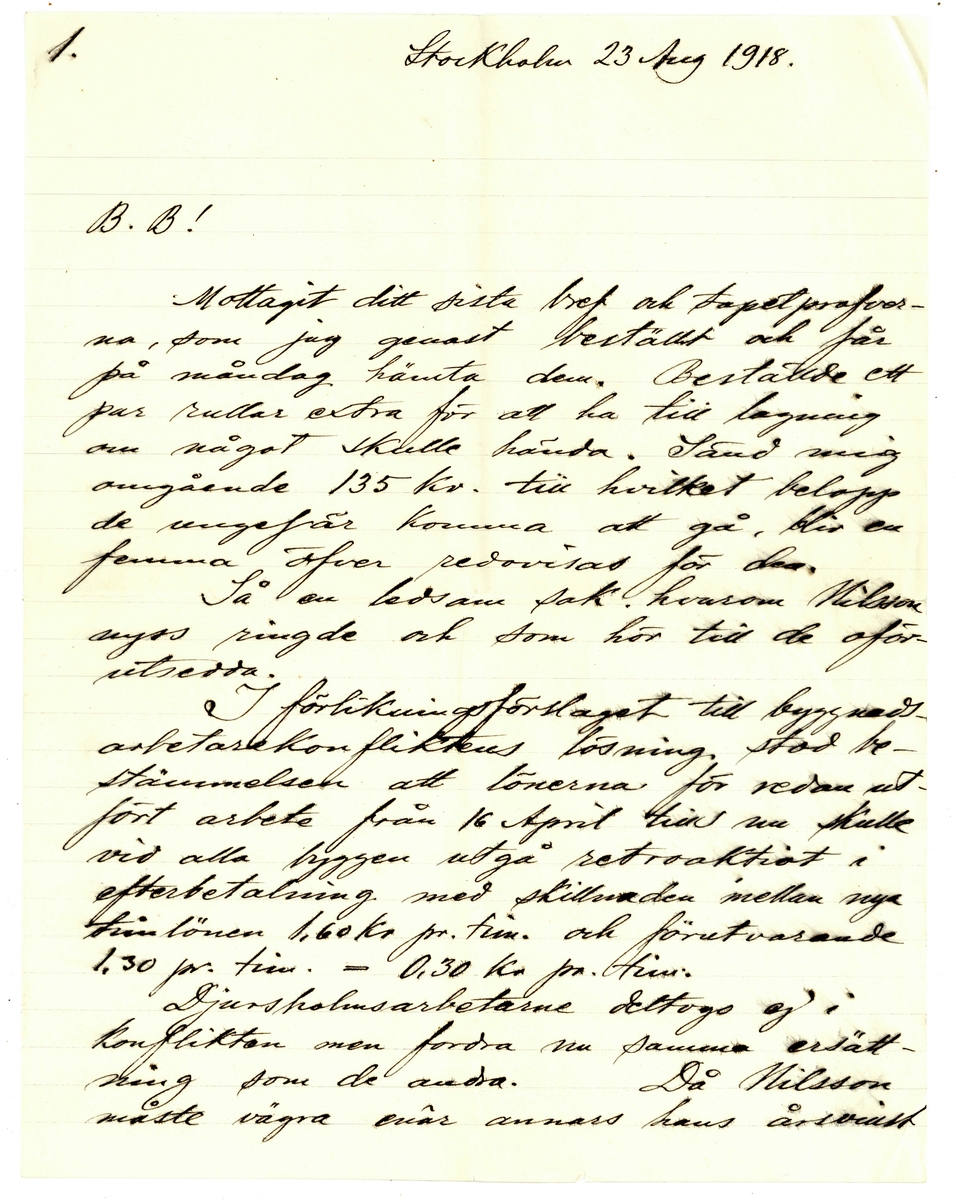 1.
Stockholm 23 Aug 1918.
B. B!
Mottagit ditt sista bref och tapetprofver-
na, som jag genast beställt och får
på måndag hämta dem. Beställde ett
par rullar extra för att ha till lagning
om något skulle hända. Sänd mig
omgående 135 Kr. till hvilket belopp
de ungefär komma att gå, blir en
femma öfver redovisas för den.
Så en ledsam sak. hvarom Nilsson
nyss ringde och som hör till de oför-
utsedda.
I förlikningsförslaget till byggnads-
arbetarekonfliktens lösning stod be-
stämmelsen att lönerna för redan ut-
fört arbete från 16 April till nu skulle
vid alla byggen utgå retroaktivt i
efterbetalning med skillnaden mellan nya
timlönen 1,60 Kr pr. tim. och förutvarande
1,30 pr. tim. = 0,30 Kr pr. tim.
Djursholmsarbetarne deltogo ej i
konflikten men fordra nu samma ersätt-
ning som de andra. Då Nilsson
måste vägra enär annars hans årsvinst